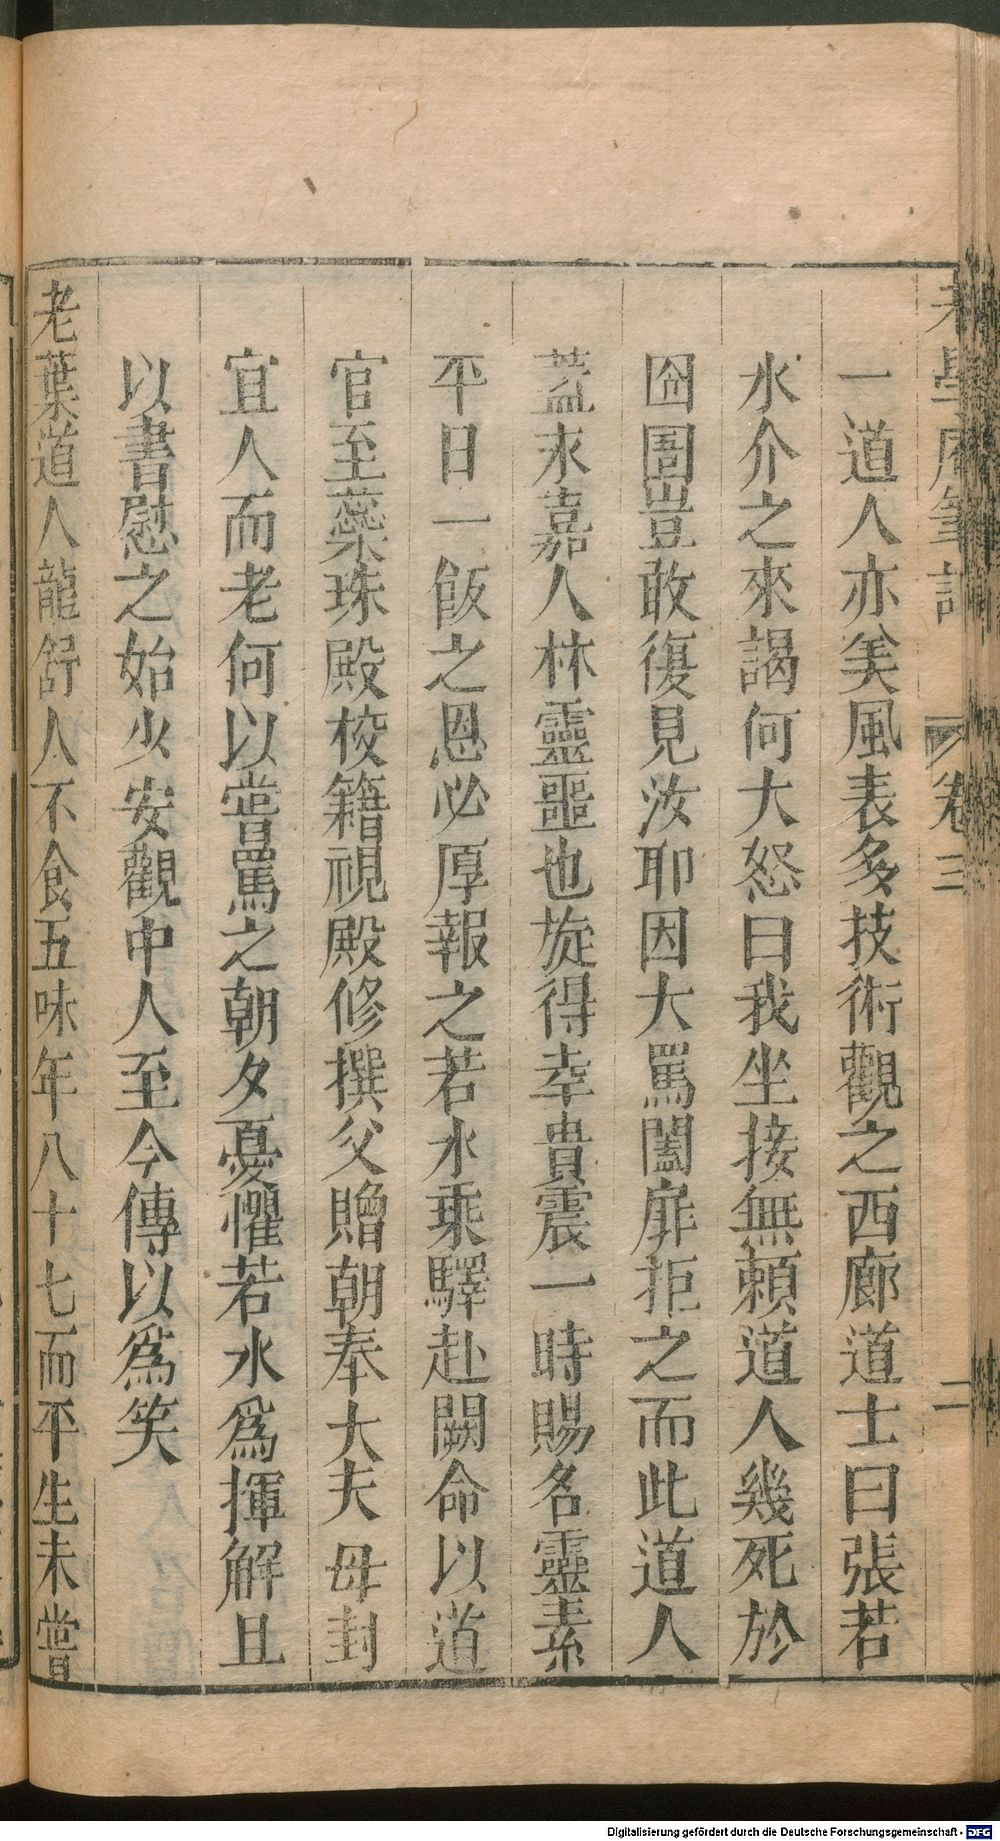 老學庵筆記 卷三 二
一道人亦美風表多技術觀之西廊道士曰張若
水介之來謁何大怒曰我坐接無賴道人幾死於
囹圄豈敢復見汝耶因大罵闔扉拒之而此道人
蓋永嘉人林靈噩也旋得幸貴震一時賜名靈素
平日一飯之恩必厚報之若水乘驛赴闕命以道
官至蘂珠殿校籍視殿修撰父贈朝奉大夫母封
宜人而老何以嘗罵之朝夕憂懼若水爲揮解且
以書慰之始少安觀中人至今傳以爲笑
老葉道人龍舒人不食五味年八十七而平生未嘗
Digitalisierung gefördert durch die Deutsche Forschungsgemeinschaft - DFG